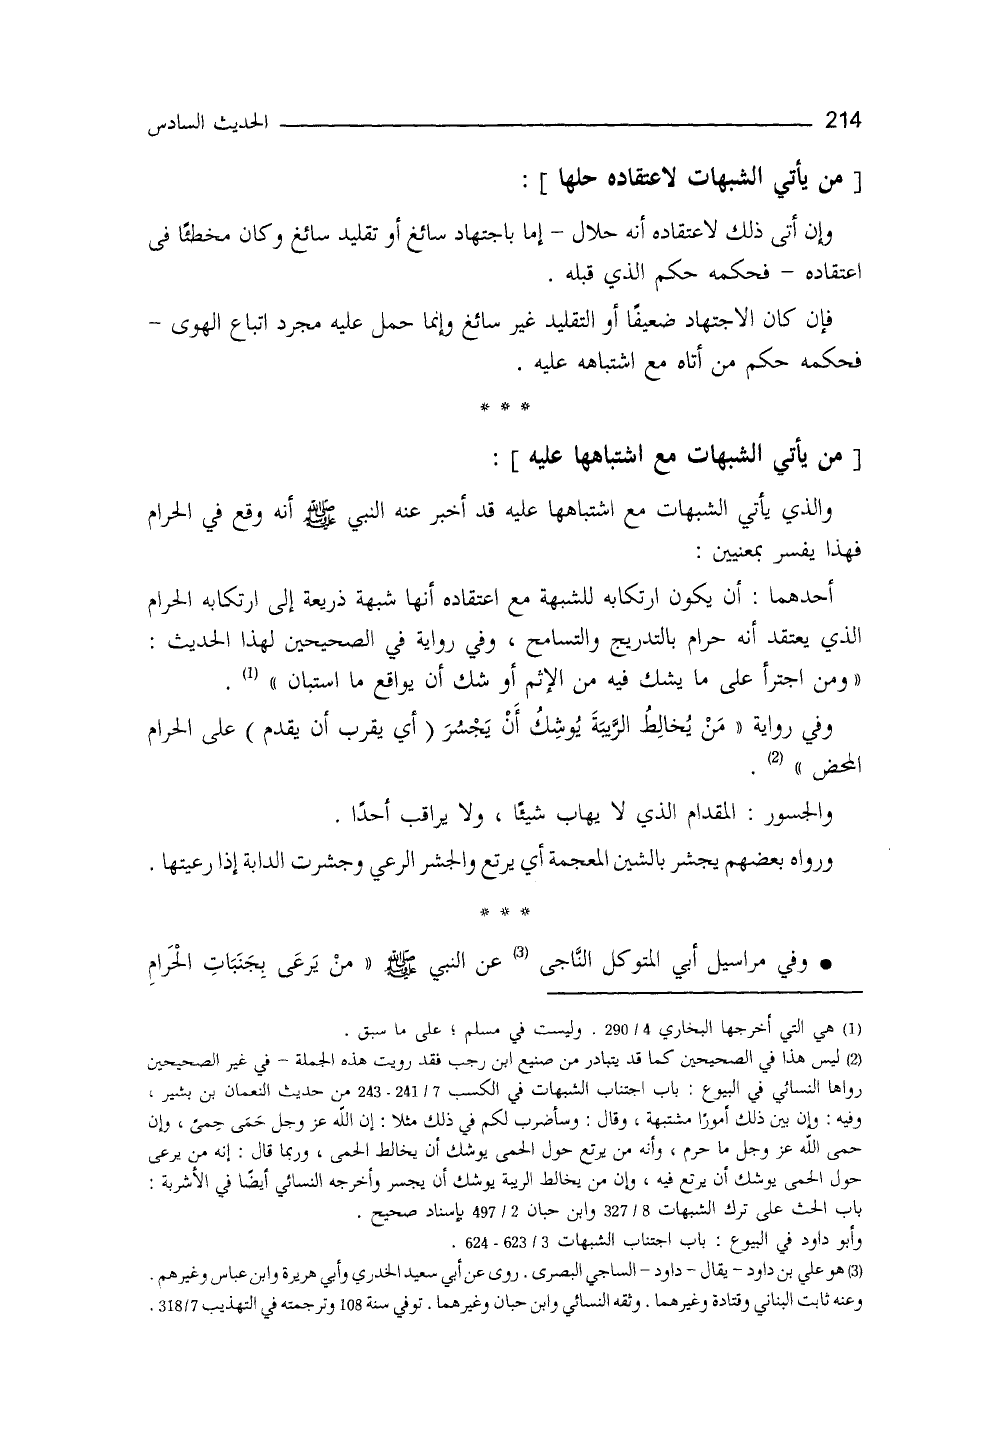 214 الحديث السادس
[ من يأتي الشبهات لاعتقاده حلها ] :
وإن أتى ذلك لاعتقاده أنه حلال – إما باجتهاد سائغ أو تقليد سائغ وكان مخطئًا فى
اعتقاده – فحكمه حكم الذي قبله .
فإن كان الاجتهاد ضعيفًا أو التقليد غير سائغ وإنما حمل عليه مجرد اتباع الهوى –
فحكمه حكم من أتاه مع اشتباهه عليه .
* * *
[ من يأتي الشبهات مع اشتباهها عليه ] :
والذي يأتي الشبهات مع اشتباهها عليه قد أخبر عنه النبي ﷺ أنه وقع في الحرام
فهذا يفسر بمعنيين :
أحدهما : أن يكون ارتكابه للشبهة مع اعتقاده أنها شبهة ذريعة إلى ارتكابه الحرام
الذي يعتقد أنه حرام بالتدريج والتسامح ، وفي رواية في الصحيحين لهذا الحديث :
« ومن اجترأ على ما يشك فيه من الإثم أو شك أن يواقع ما استبان » (1) .
وفي رواية « مَنْ يُخالِطُ الرَّيبَةَ يُوشِكُ أَنْ يَجْسُرَ ( أي يقرب أن يقدم ) على الحرام
المحض » (2) .
والجسور : المقدام الذي لا يهاب شيئًا ، ولا يراقب أحدًا .
ورواه بعضهم يجشر بالشين المعجمة أي يرتع والجشر الرعي وجشرت الدابة إذا رعيتها .
* * *
● وفي مراسيل أبي المتوكل النَّاجى (3) عن النبي ﷺ « منْ يَرعَى بِجَنَبَاتِ الْحَرامِ
(1) هي التي أخرجها البخاري 4 / 290 . وليست في مسلم ؛ على ما سبق .
(2) ليس هذا في الصحيحين كما قد يتبادر من صنيع ابن رجب فقد رويت هذه الجملة – في غير الصحيحين
رواها النسائي في البيوع : باب اجتناب الشبهات في الكسب 7 / 241 - 243 من حديث النعمان بن بشير ،
وفيه : وإن بين ذلك أمورًا مشتبهة ، وقال : وسأضرب لكم في ذلك مثلا : إن اللّه عز وجل حَمَى حِمىً ، وإن
حمى اللّه عز وجل ما حرم ، وأنه من يرتع حول الحمى يوشك أن يخالط الحمى ، وربما قال : إنه من يرعى
حول الحمى يوشك أن يرتع فيه ، وإن من يخالط الريبة يوشك أن يجسر وأخرجه النسائي أيضًا في الأشربة :
باب الحث على ترك الشبهات 8 / 327 وابن حبان 2 / 497 بإسناد صحيح .
وأبو داود في البيوع : باب اجتناب الشبهات 3 / 623 - 624 .
(3) هو علي بن داود – يقال – داود – الساجي البصرى . روى عن أبي سعيد الخدري وأبي هريرة وابن عباس وغيرهم .
وعنه ثابت البناني وقتادة وغيرهما . وثقه النسائي وابن حبان وغيرهما . توفي سنة 108 وترجمته في التهذيب 7/318 .